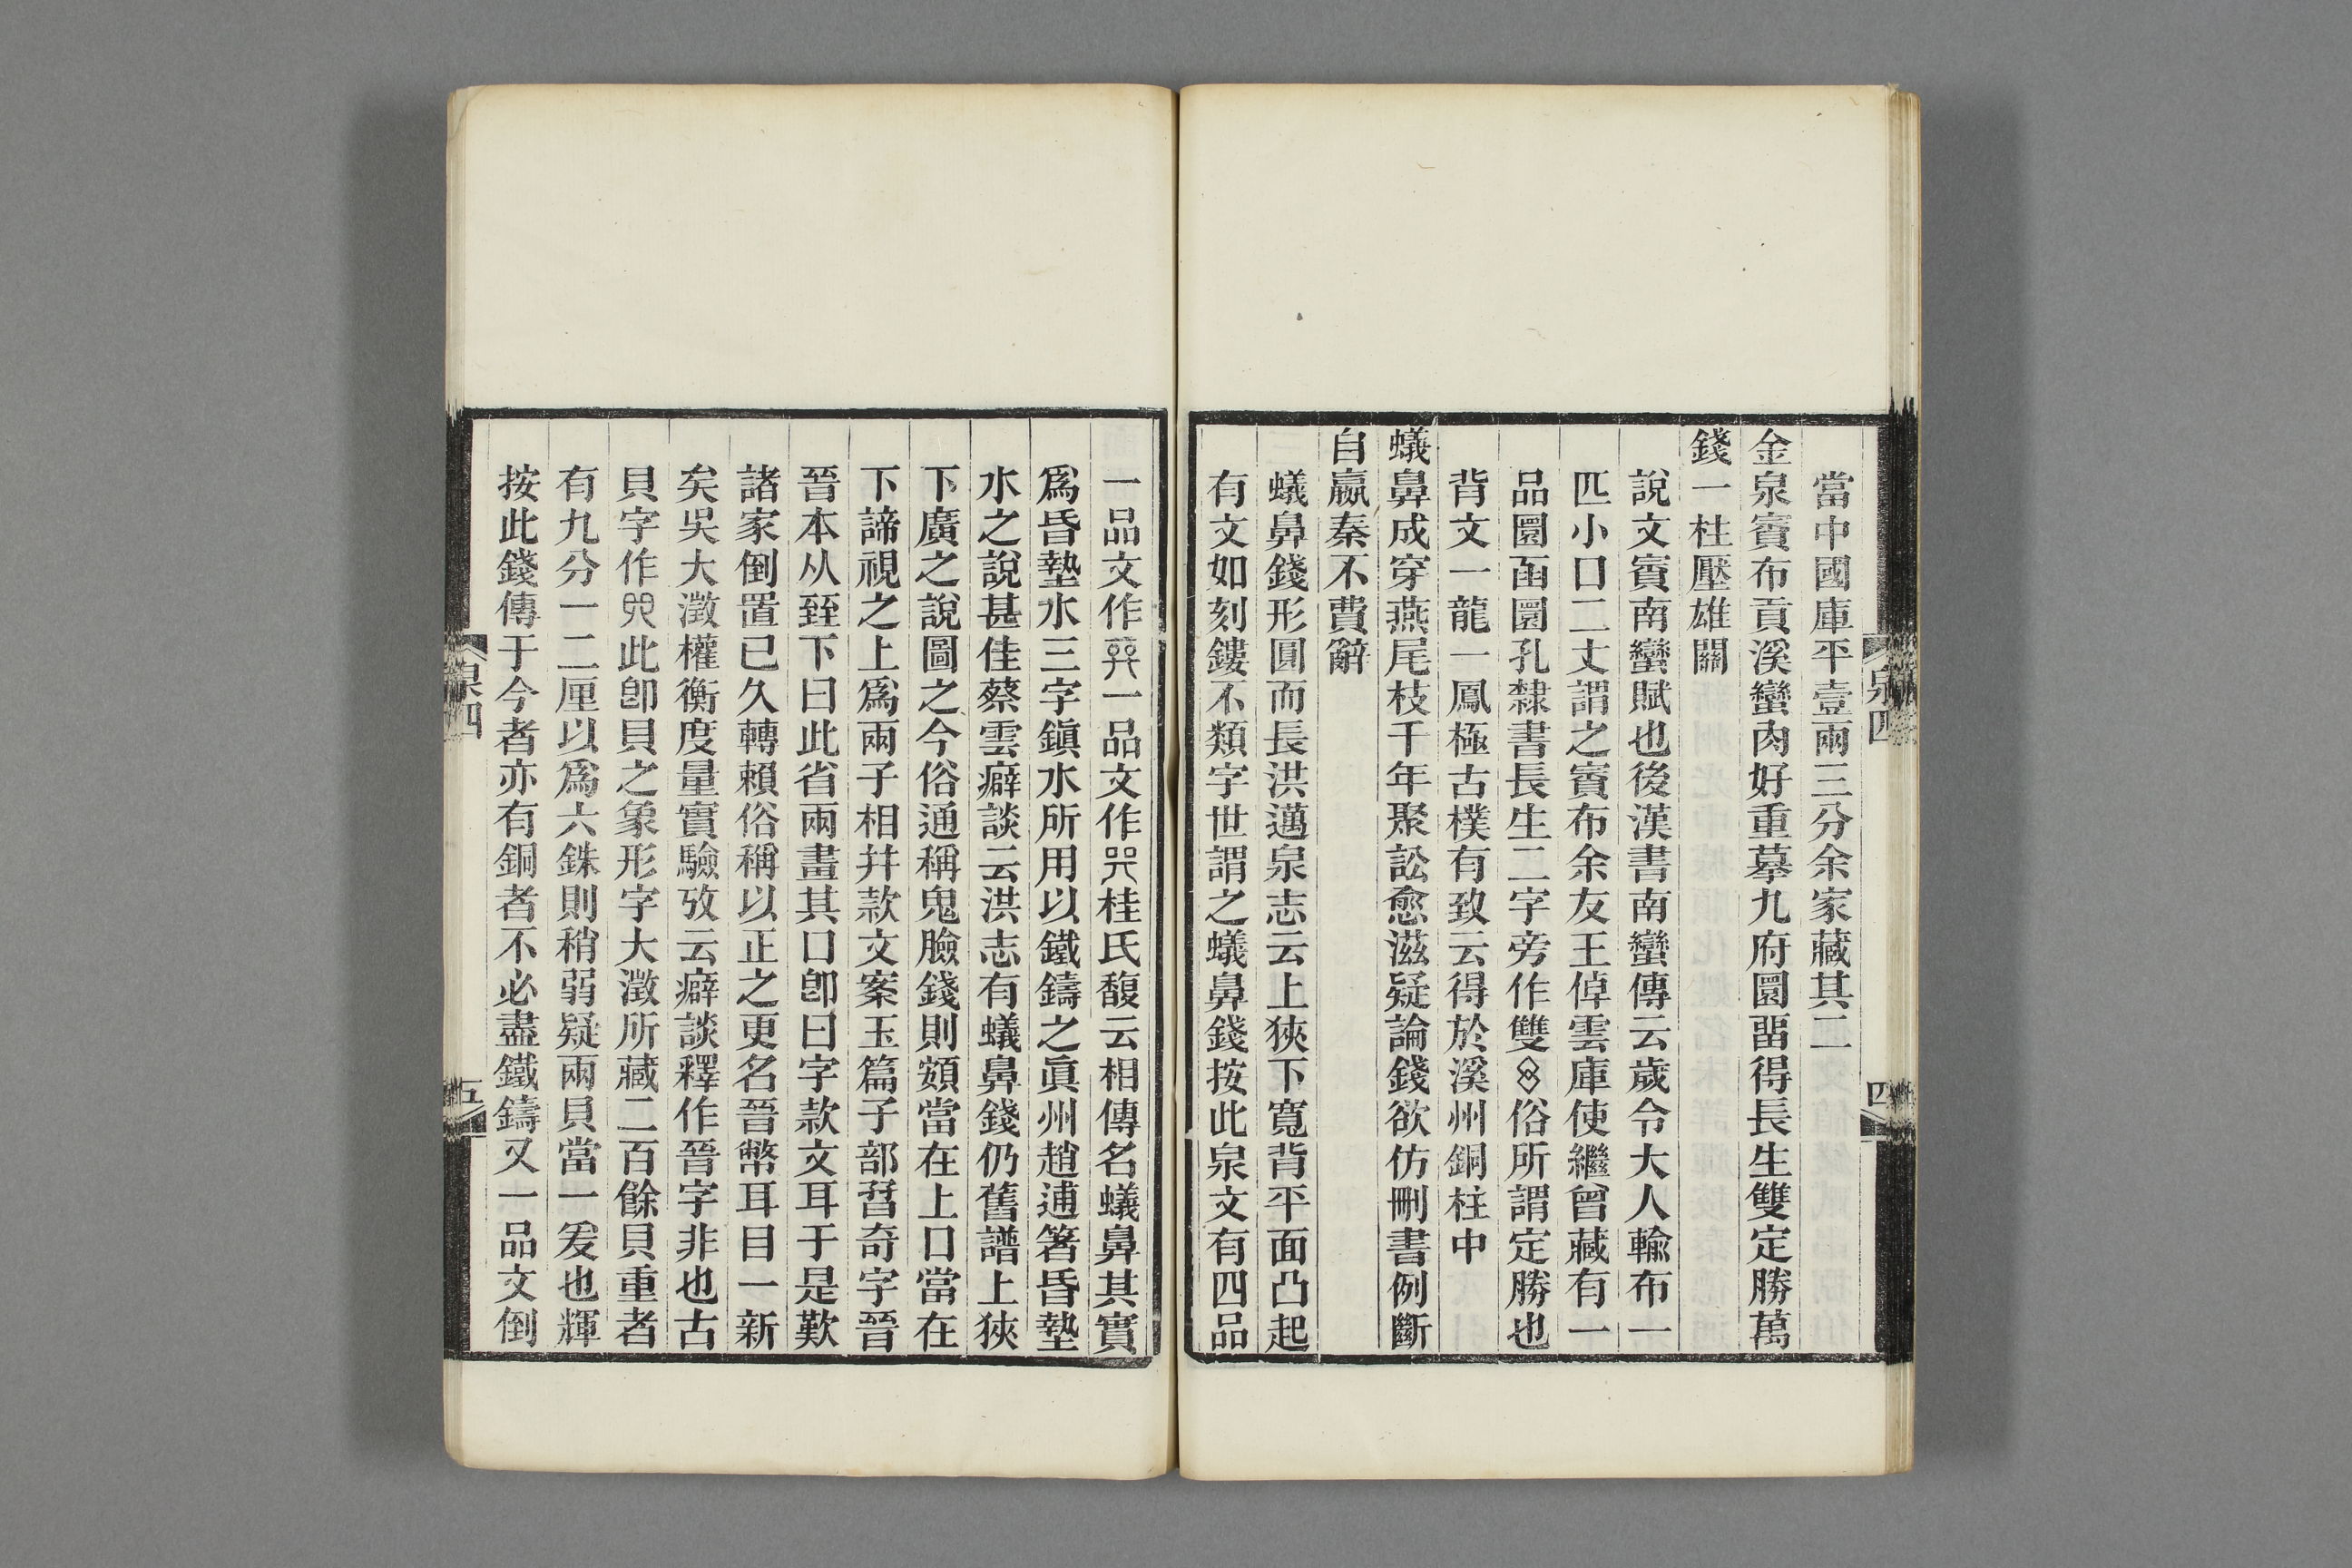 當中國庫平壹兩三分余家藏其二
金泉賨布貢溪蠻肉好重摹九府圜畱得長生雙定勝萬
錢一柱壓雄關
說文賨南蠻賦也後漢書南蠻傳云歲令大人輸布一
匹小口二丈謂之賨布余友王倬雲庫使繼曾藏有一
品圜函圜孔隸書長生二字旁作雙俗所謂定勝也
背文一龍一鳳極古樸有致云得於溪州銅柱中
蟻鼻成穿燕尾枝千年聚訟愈滋疑論錢欲仿刪書例斷
自嬴秦不費辭
蟻鼻錢形圓而長洪邁泉志云上狹下寬背平面凸起
有文如刻鏤不類字世謂之蟻鼻錢按此泉文有四品
泉四
四
一品文作一品文作桂氏馥云相傳名蟻鼻其實
爲昏墊水三字鎭水所用以鐵鑄之眞州趙逋箸昏墊
水之說甚佳蔡雲癖談云洪志有蟻鼻錢仍舊譜上狹
下廣之說圖之今俗通稱鬼臉錢則頦當在上口當在
下諦視之上爲兩子相幷款文案玉篇子部孴奇字晉
晉本从臸下曰此省兩畫其口卽曰字款文耳于是歎
諸家倒置已久轉賴俗稱以正之更名晉幣耳目一新
矣吳大澂權衡度量實驗攷云癖談釋作晉字非也古
貝字作此卽貝之象形字大澂所藏二百餘貝重者
有九分一二厘以爲六銖則稍弱疑兩貝當一爰也輝
按此錢傳于今者亦有銅者不必盡鐵鑄又一品文倒
泉四
五